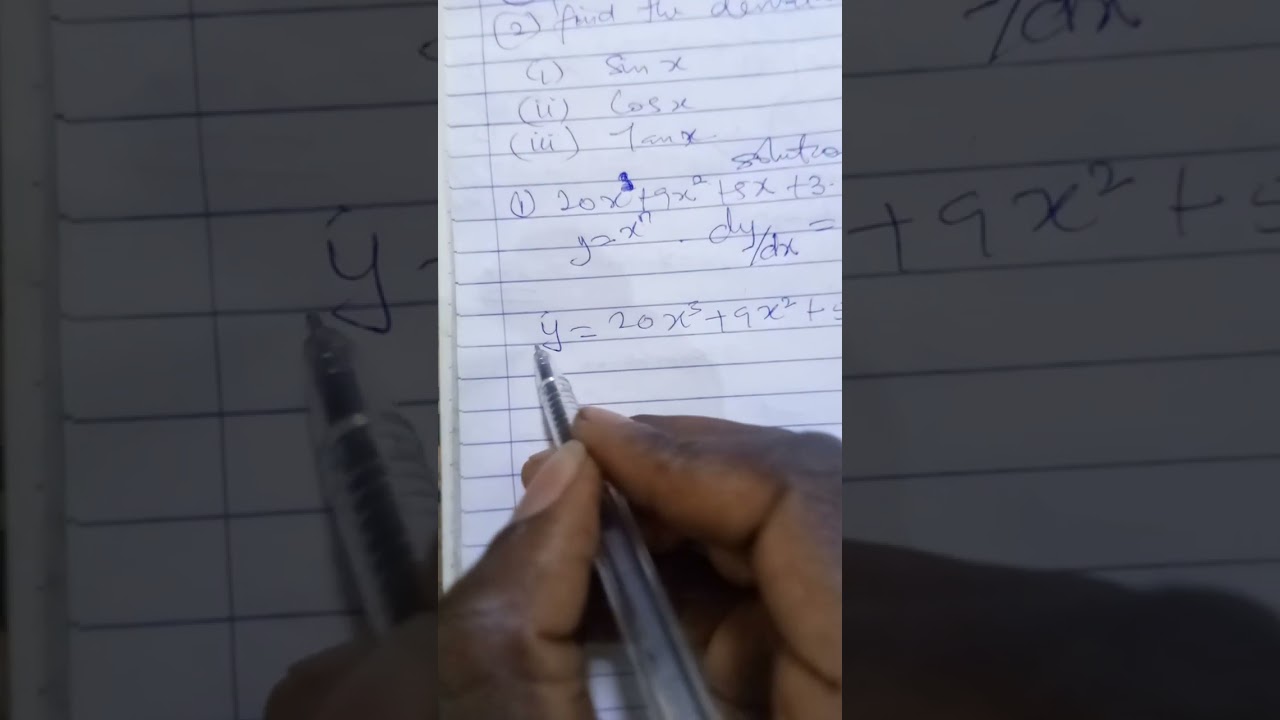 (2) find the
(i) sin x
(ii) cos x
(iii) Tan x.
solutio
① 20x³+9x²+5x+3.
y=x^n. dy/dx =
y = 20x³+9x²+5